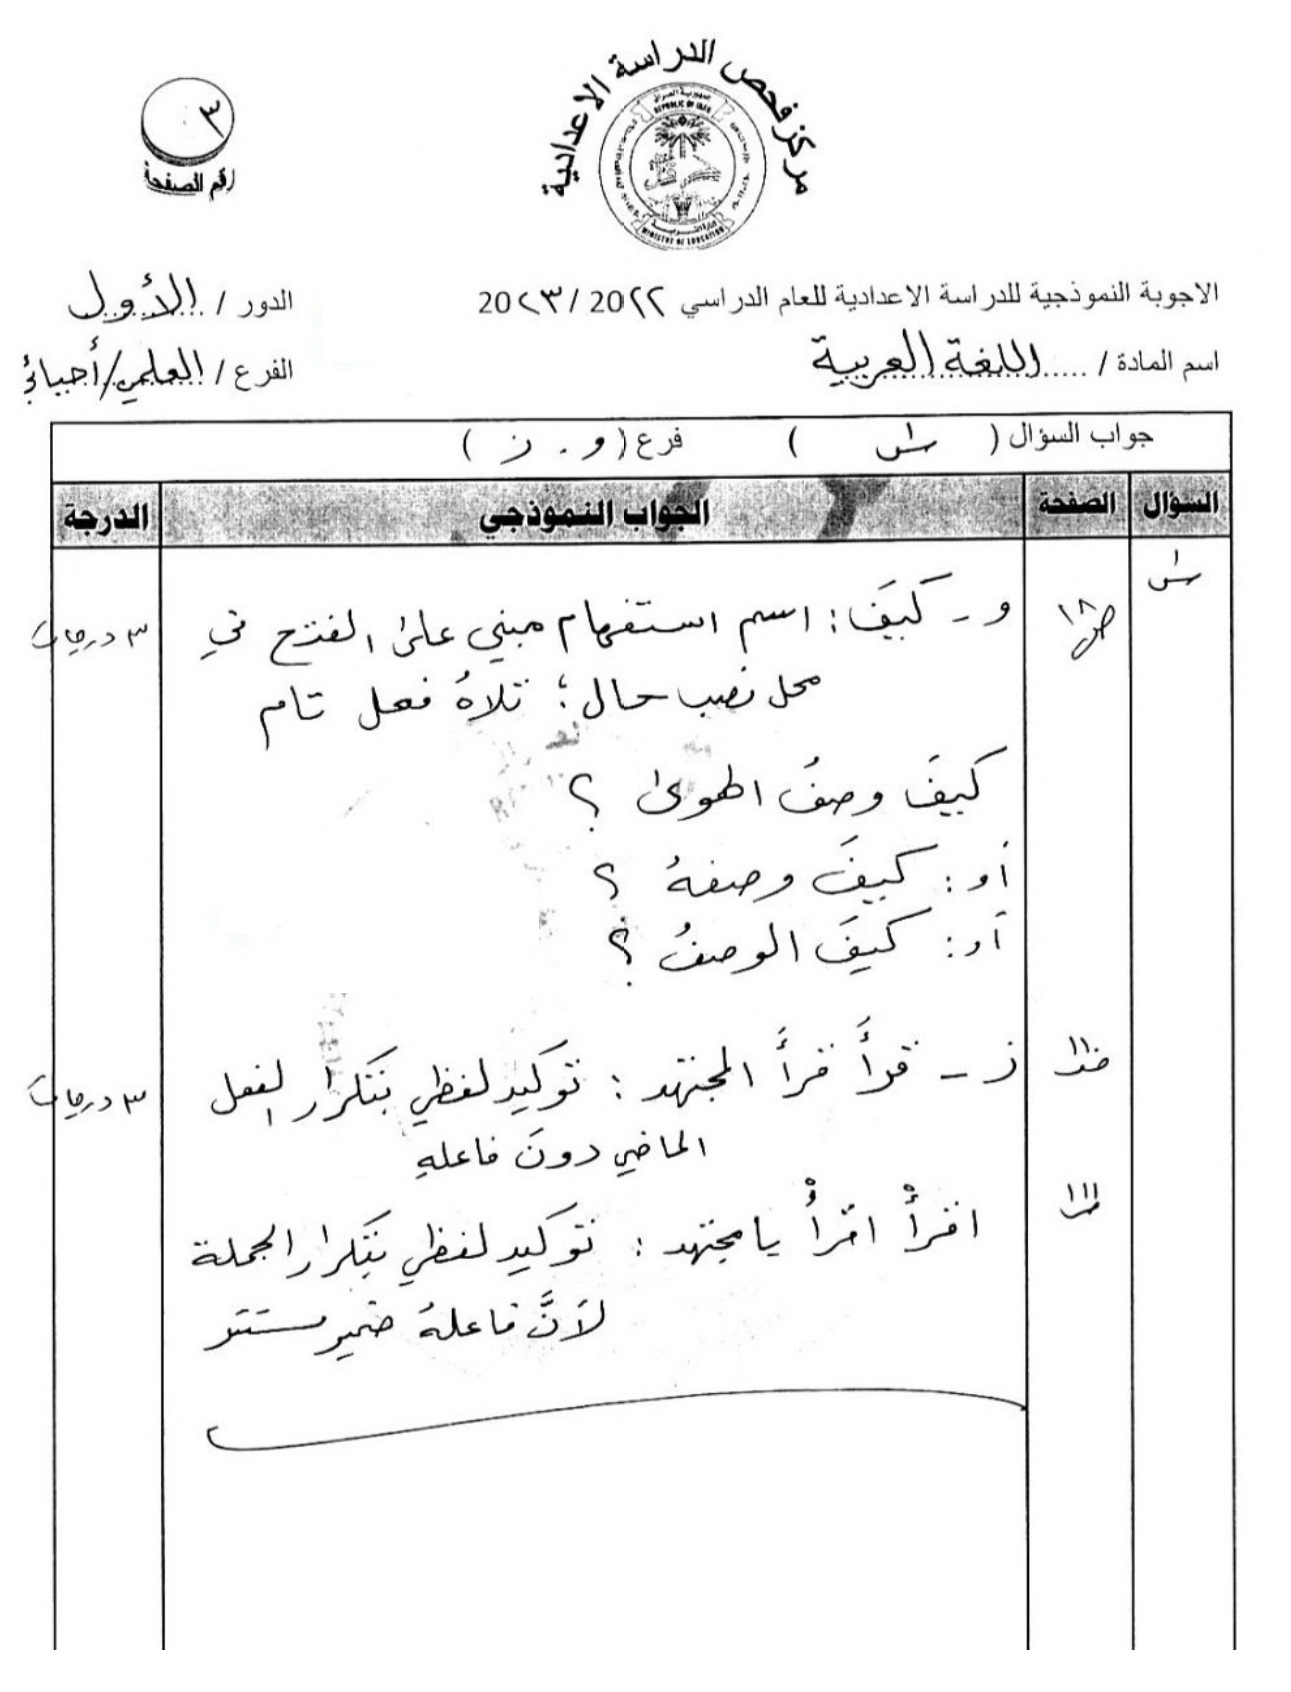 مركز فحص الدراسة الاعدادية
جمهورية العراق
REPUBLIC OF IRAQ
وزارة التربية
MINISTRY OF EDUCATION
٣
رقم الصفحة
الاجوبة النموذجية للدراسة الاعدادية للعام الدراسي 20٢٢ / 20٢٣
الدور / الأول
اسم المادة / اللغة العربية
الفرع / العلمي/أحيائي
جواب السؤال ( س١ ) فرع ( و . ز )
السؤال الصفحة الجواب النموذجي الدرجة
س١
ص١٨ و - كيفَ: اسم استفهام مبني على الفتح في ٣ درجات
محل نصب حال؛ تلاهُ فعل تام
كيفَ وصفُ الهوى ؟
أو: كيفَ وصفهُ ؟
أو: كيفَ الوصفُ ؟
ص١١٠ ز - قرأَ قرأَ المجتهد : توكيد لفظي بتكرار الفعل ٣ درجات
الماضي دونَ فاعلهِ
ص١١١ اقرأْ اقرأْ يا مجتهد : توكيد لفظي بتكرار الجملة
لأنَّ فاعلهُ ضمير مستتر